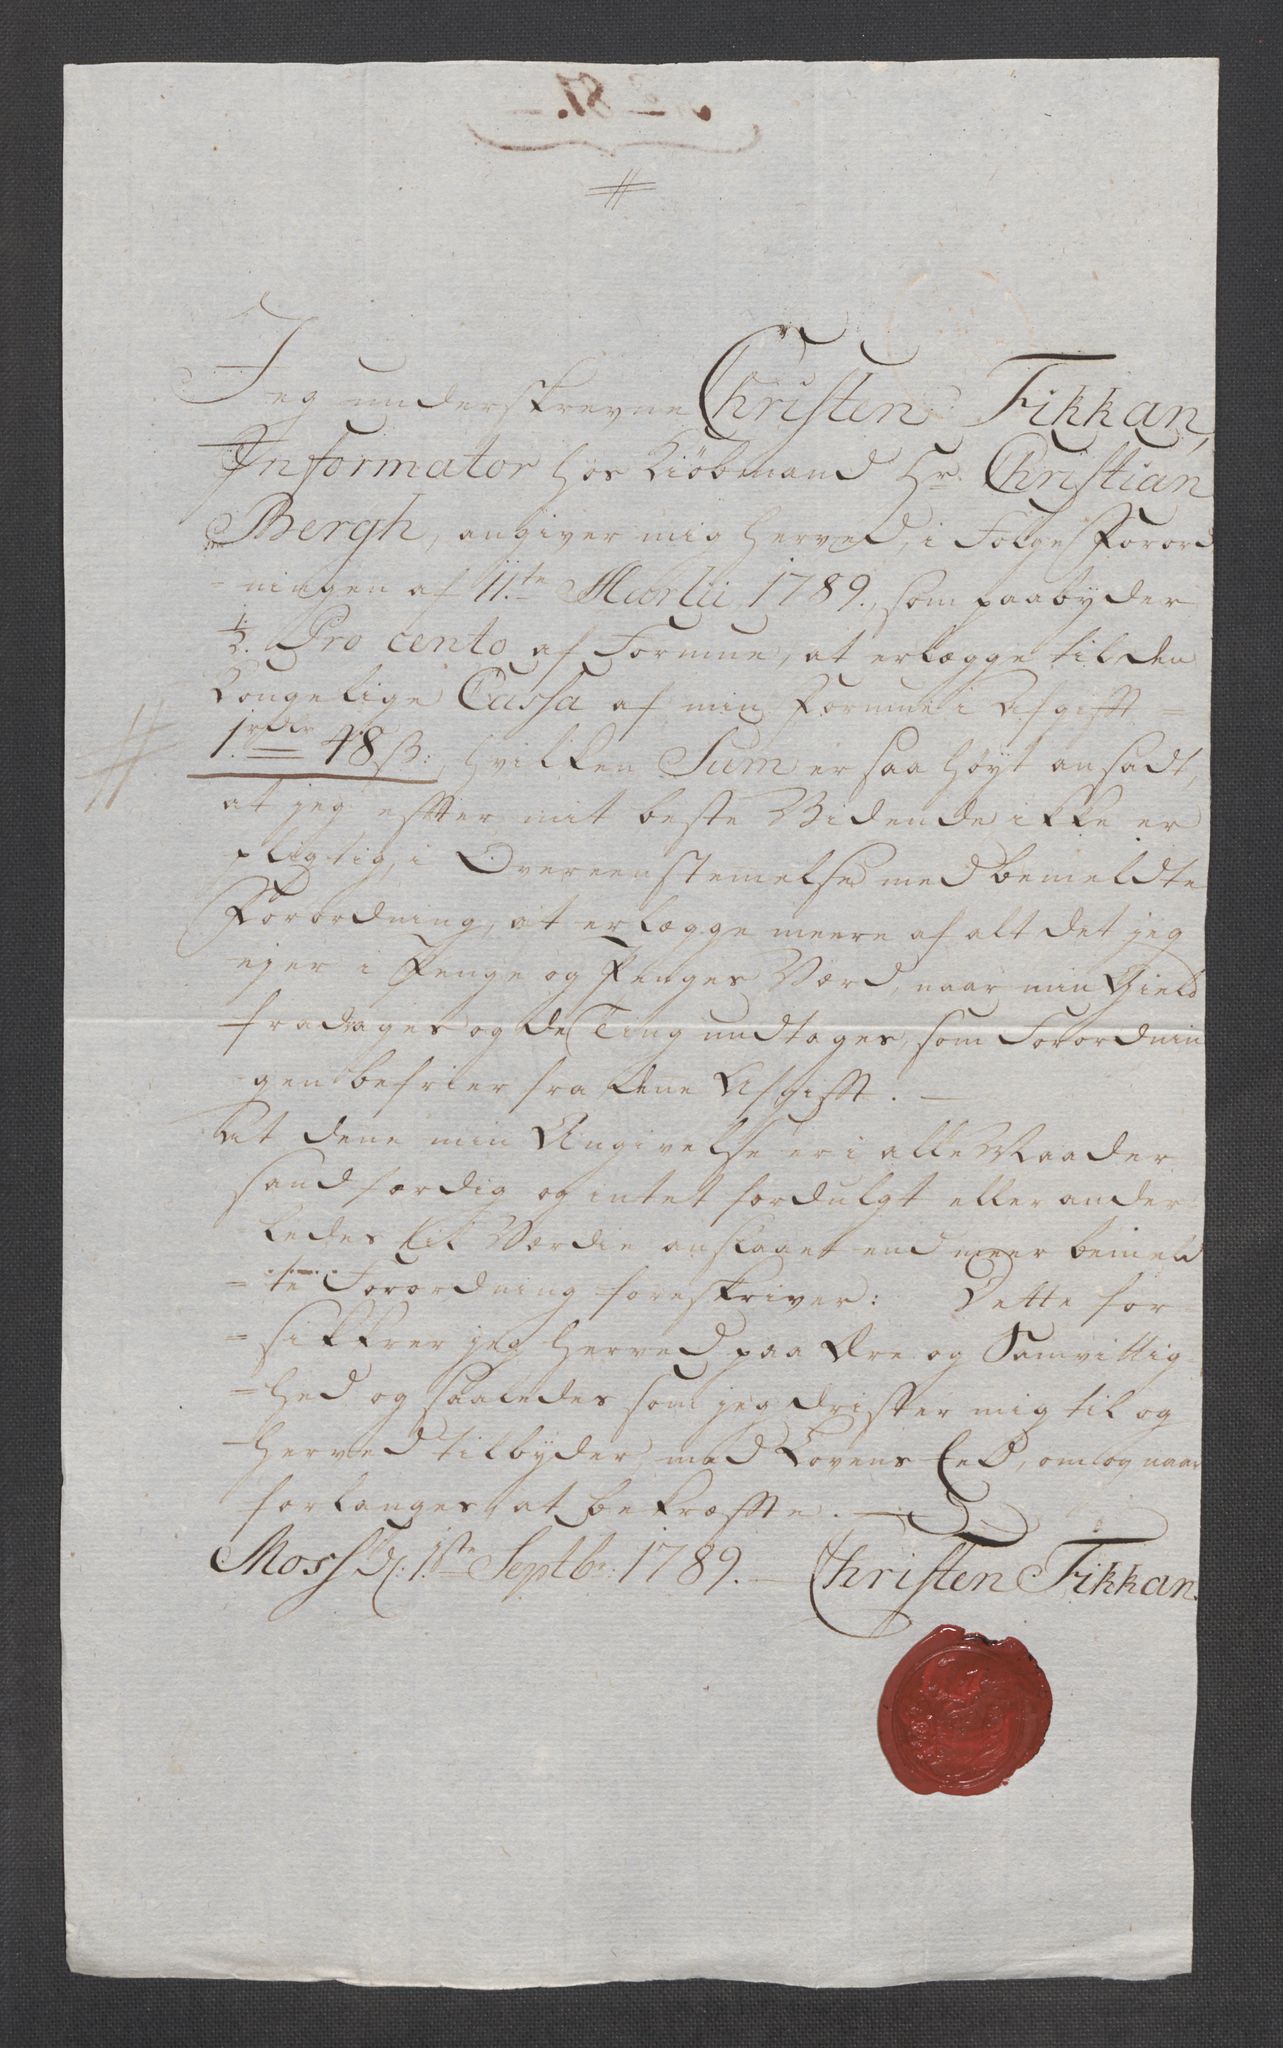 Jeg underskrevne Christen Fikkan,
Informator hos Kiøbmand Hr. Christian
Bergh, angiver mig herved, i Følge Forord
-ningen af 11.te Martii 1789., som paabyder
1/2. Pro cento af Formue, at erlægge til den
Kongelige Cassa af min Formue i Afgifft =
1. rdlr 48 ß: hvilken Sum er saa høyt ansadt,
at jeg effter mit beste Vidende ikke er
pligtig, i Overeenstemelse med bemeldte
Forordning, at erlægge meere af alt det jeg
ejer i Penge og Penges Værd, naar min Gield
fradrages og de Ting undtages, som Forordnin
gen befrier fra dene Afgifft. —
At dene min Angivelse er i alle Maader
sandfærdig og intet fordulgt eller ander-
ledes til Værdie anslaaet end meer bemeld
-te Forordning foreskriver: Dette for-
=sikkrer jeg herved paa Ære og Samvittig-
=hed og saaledes som jeg drister mig til og
herved tilbyder, med Lovens Eed, om og naar
forlanges, at bekræffte. —
Moss d. 1ste Septbr: 1789. — Christen Fikkan.